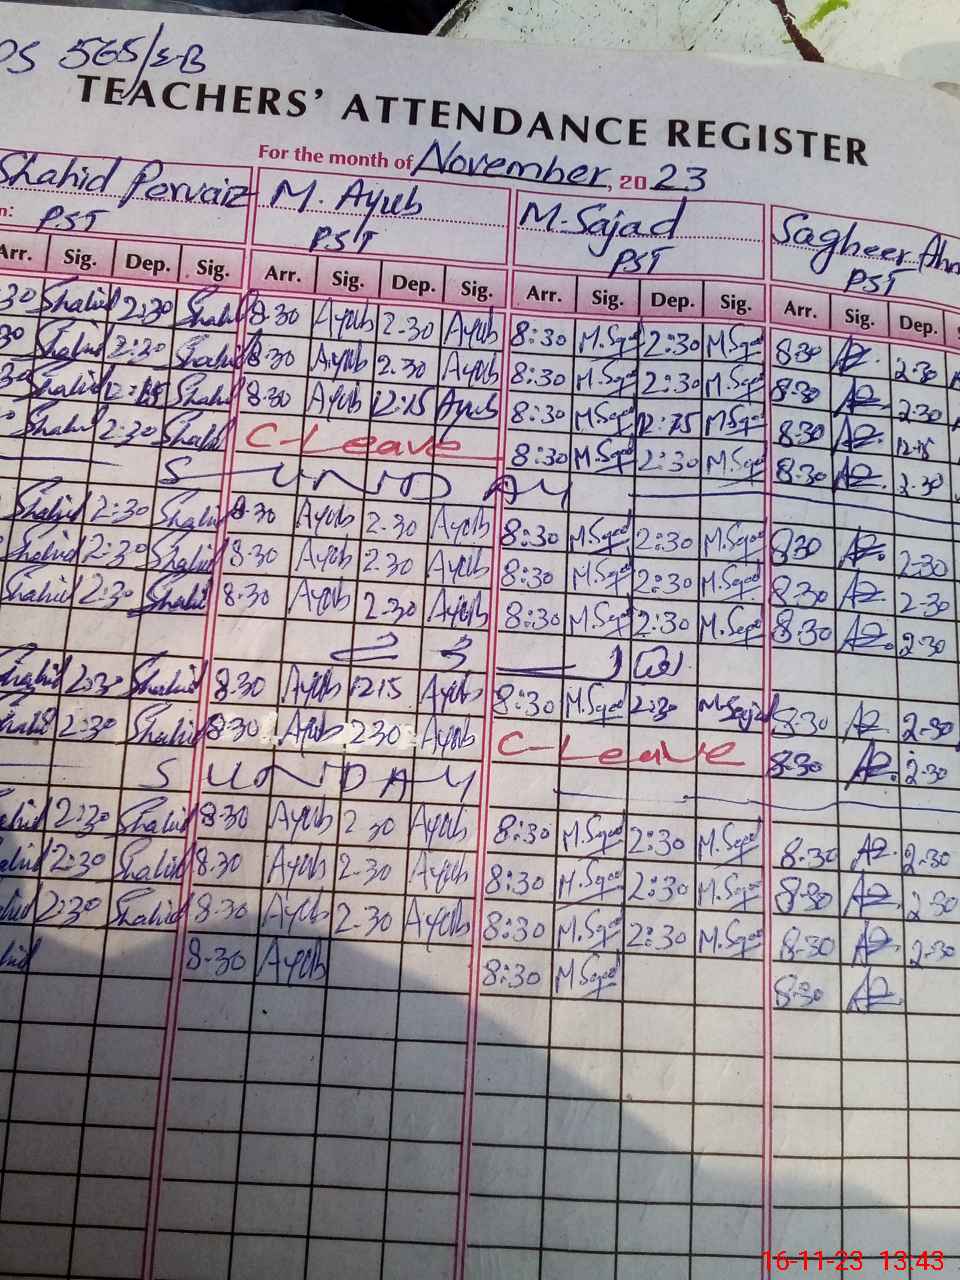 565/EB
TEACHERS' ATTENDANCE REGISTER
For the month of November, 2023
Shahid Pervaiz M. Ayub M.Sajad Sagheer
PST PST PST PST
Arr. Sig. Dep. Sig. Arr. Sig. Dep. Sig. Arr. Sig. Dep. Sig. Arr. Sig. Dep.
30 Shahid 2:30 Shahid 8.30 Ayub 2.30 Ayub 8:30 M.Sajad 2:30 M.Sajad 8:30 2:30
30 Shahid 2:30 Shahid 8.30 Ayub 2.30 Ayub 8:30 M.Sajad 2:30 M.Sajad 8:30 2:30
30 Shahid 12:15 Shahid 8.30 Ayub 12:15 Ayub 8:30 M.Sajad 12:15 M.Sajad 8:30 12:15
Shahid 2:30 Shahid C-Leave 8:30 M.Sajad 2:30 M.Sajad 8:30 2:30
SUNDAY
Shahid 2:30 Shahid 8.30 Ayub 2.30 Ayub 8:30 M.Sajad 2:30 M.Sajad 8:30 2:30
Shahid 2:30 Shahid 8.30 Ayub 2.30 Ayub 8:30 M.Sajad 2:30 M.Sajad 8:30 2:30
Shahid 2:30 Shahid 8.30 Ayub 2.30 Ayub 8:30 M.Sajad 2:30 M.Sajad 8:30 2:30
Shahid 2:30 Shahid 8.30 Ayub 1215 Ayub 8:30 M.Sajad 2:30 M.Sajad 8:30 2:30
Shahid 2:30 Shahid 8:30 Ayub 2:30 Ayub C-Leave 8:30 2:30
SUNDAY
Shahid 2:30 Shahid 8.30 Ayub 2.30 Ayub 8:30 M.Sajad 2:30 M.Sajad 8.30 2:30
Shahid 2:30 Shahid 8.30 Ayub 2.30 Ayub 8:30 M.Sajad 2:30 M.Sajad 8:30 2:30
Shahid 2:30 Shahid 8.30 Ayub 2.30 Ayub 8:30 M.Sajad 2:30 M.Sajad 8:30 2:30
8.30 Ayub 8:30 M.Sajad 8:30
16-11-23 13:43